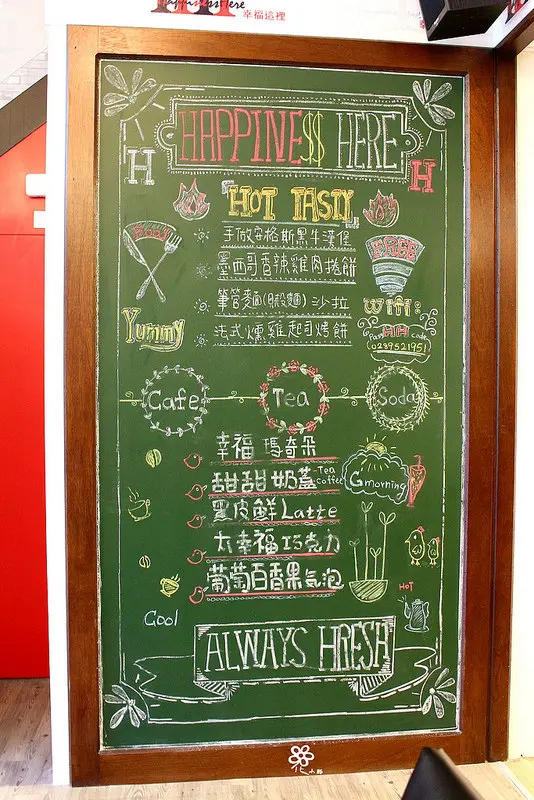 Happiness Here
幸福這裡
HAPPINE$$ HERE
H
H
HOT TASTY
手做安格斯黑牛漢堡
墨西哥香辣雞肉捲餅
筆管麵(貝殼麵)沙拉
法式燻雞起司烤餅
Food
Yummy
FREE
Wifi:
HH
(0289521951)
Cafe
Tea
Soda
幸福 瑪奇朵
甜甜奶蓋 Tea Coffee
黑皮鮮Latte
太幸福巧克力
葡萄百香果氣泡
Gmorning
HOT
Cool
ALWAYS HRESH